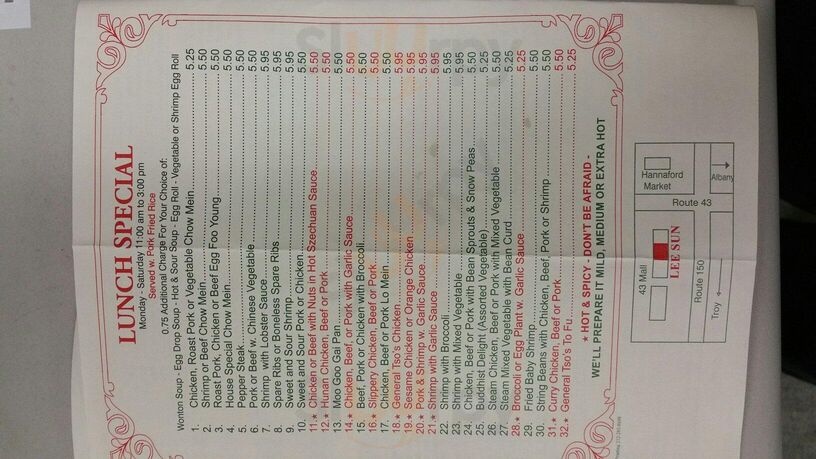 LUNCH SPECIAL
Monday - Saturday 11:00 am to 3:00 pm
Served w. Pork Fried Rice
0.75 Additional Charge For Your Choice of:
Wonton Soup - Egg Drop Soup - Hot & Sour Soup - Egg Roll - Vegetable or Shrimp Egg Roll
1. Chicken, Roast Pork or Vegetable Chow Mein 5.25
2. Shrimp or Beef Chow Mein 5.50
3. Roast Pork, Chicken or Beef Egg Foo Young 5.50
4. House Special Chow Mein 5.50
5. Pepper Steak 5.50
6. Pork or Beef w. Chinese Vegetable 5.50
7. Shrimp with Lobster Sauce 5.95
8. Spare Ribs or Boneless Spare Ribs 5.95
9. Sweet and Sour Shrimp 5.95
10. Sweet and Sour Pork or Chicken 5.50
11.★ Chicken or Beef with Nuts in Hot Szechuan Sauce 5.50
12.★ Hunan Chicken, Beef or Pork 5.50
13. Moo Goo Gai Pan 5.50
14.★ Chicken, Beef, or Pork with Garlic Sauce 5.50
15. Beef, Pork or Chicken with Broccoli 5.50
16.★ Slippery Chicken, Beef or Pork 5.50
17. Chicken, Beef or Pork Lo Mein 5.50
18.★ General Tso's Chicken 5.95
19.★ Sesame Chicken or Orange Chicken 5.95
20.★ Pork & Shrimp w. Garlic Sauce 5.95
21.★ Shrimp with Garlic Sauce 5.95
22. Shrimp with Broccoli 5.95
23. Shrimp with Mixed Vegetable 5.95
24. Chicken, Beef or Pork with Bean Sprouts & Snow Peas 5.50
25. Buddhist Delight (Assorted Vegetable) 5.25
26. Steam Chicken, Beef or Pork with Mixed Vegetable 5.50
27. Steam Mixed Vegetable with Bean Curd 5.25
28.★ Broccoli, or Egg Plant w. Garlic Sauce 5.25
29. Fried Baby Shrimp 5.50
30. String Beans with Chicken, Beef, Pork or Shrimp 5.50
31.★ Curry Chicken, Beef or Pork 5.50
32.★ General Tso's To Fu 5.25
★ HOT & SPICY - DON'T BE AFRAID -
WE'LL PREPARE IT MILD, MEDIUM OR EXTRA HOT
43 Mall
Hannaford
Market
LEE SUN
Route 43
Route 150
Troy
Albany